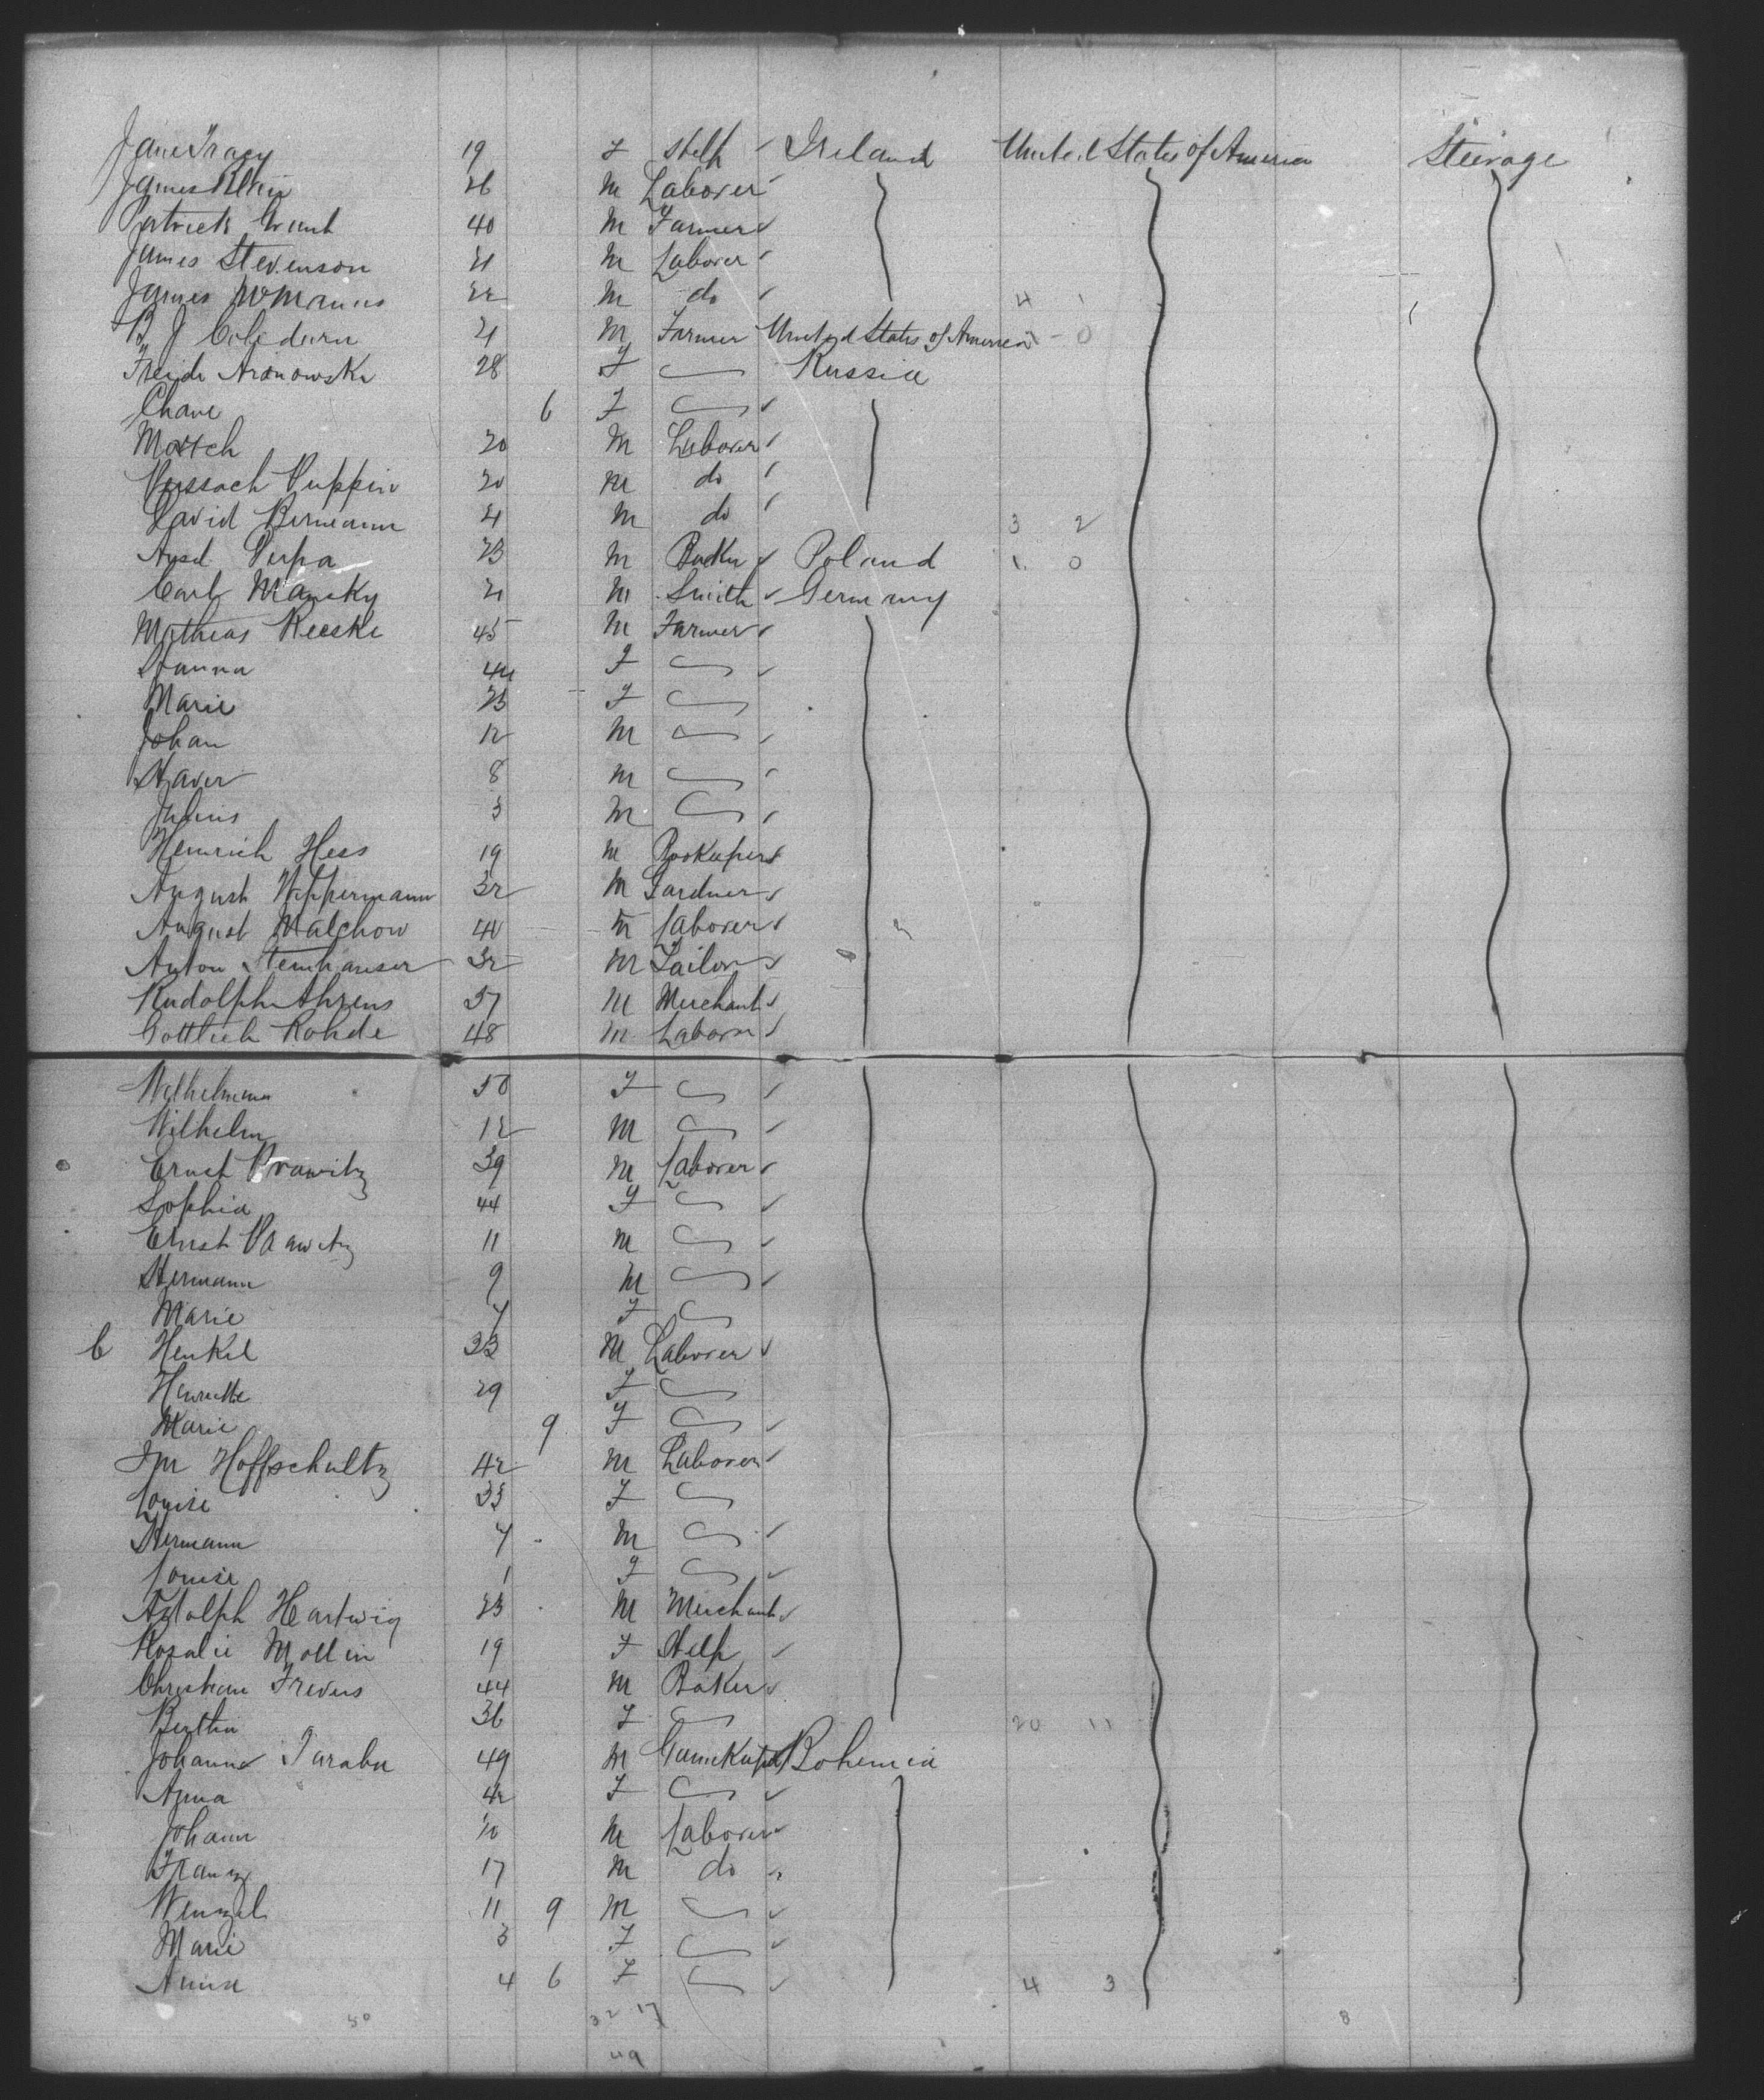 Jane Tracy 19 F Help Ireland United States of America Steerage
James 26 M Laborer
Patrick Grant 40 M Farmer
James Stevenson 21 M Laborer
James McManus 22 M do 4 1
B J 21 M Farmer United States of America 0
Aronowska 28 F Russia
Chane 6 F
20 M Laborer
20 M do
David Bermann 21 M do 3 2
23 M Poland 1 0
Carl Mansky 21 M Smith Germany
Mathias Reeske 45 M Farmer
Hanna 44 F
Marie 23 F
Johan 12 M
Xaver 8 M
Julius 3 M
Heinrich Hess 19 M Bookeeper
August Wippermann 32 M Gardner
August Malchow 40 M Laborer
Anton Steinhauser 32 M Tailor
Rudolph Ahrens 37 M Merchant
Gottlieb Rohde 48 M Laborer
Wilhelmina 50 F
Wilhelm 12 M
Ernst Prawitz 39 M Laborer
Sophia 44 F
Ernst Prawitz 11 M
Hermann 9 M
Marie 7 F
C Henkel 33 M Laborer
Henriette 29 F
Marie 9 F
Hoffschultz 42 M Laborer
Louise 33 F
Hermann 7 M
Louise 1 F
Adolph Hartwig 23 M Merchant
Rosalie Mollin 19 F Help
Christian Frevers 44 M Baker
Bertha 36 F 20 11
Johann 49 M Bohemia
Anna 42 F
Johann M Laborer
Franz 17 M do
Wenzel 11 9 M
Marie 3 F
Anna 4 6 F 4 3
50 32 17 8
49